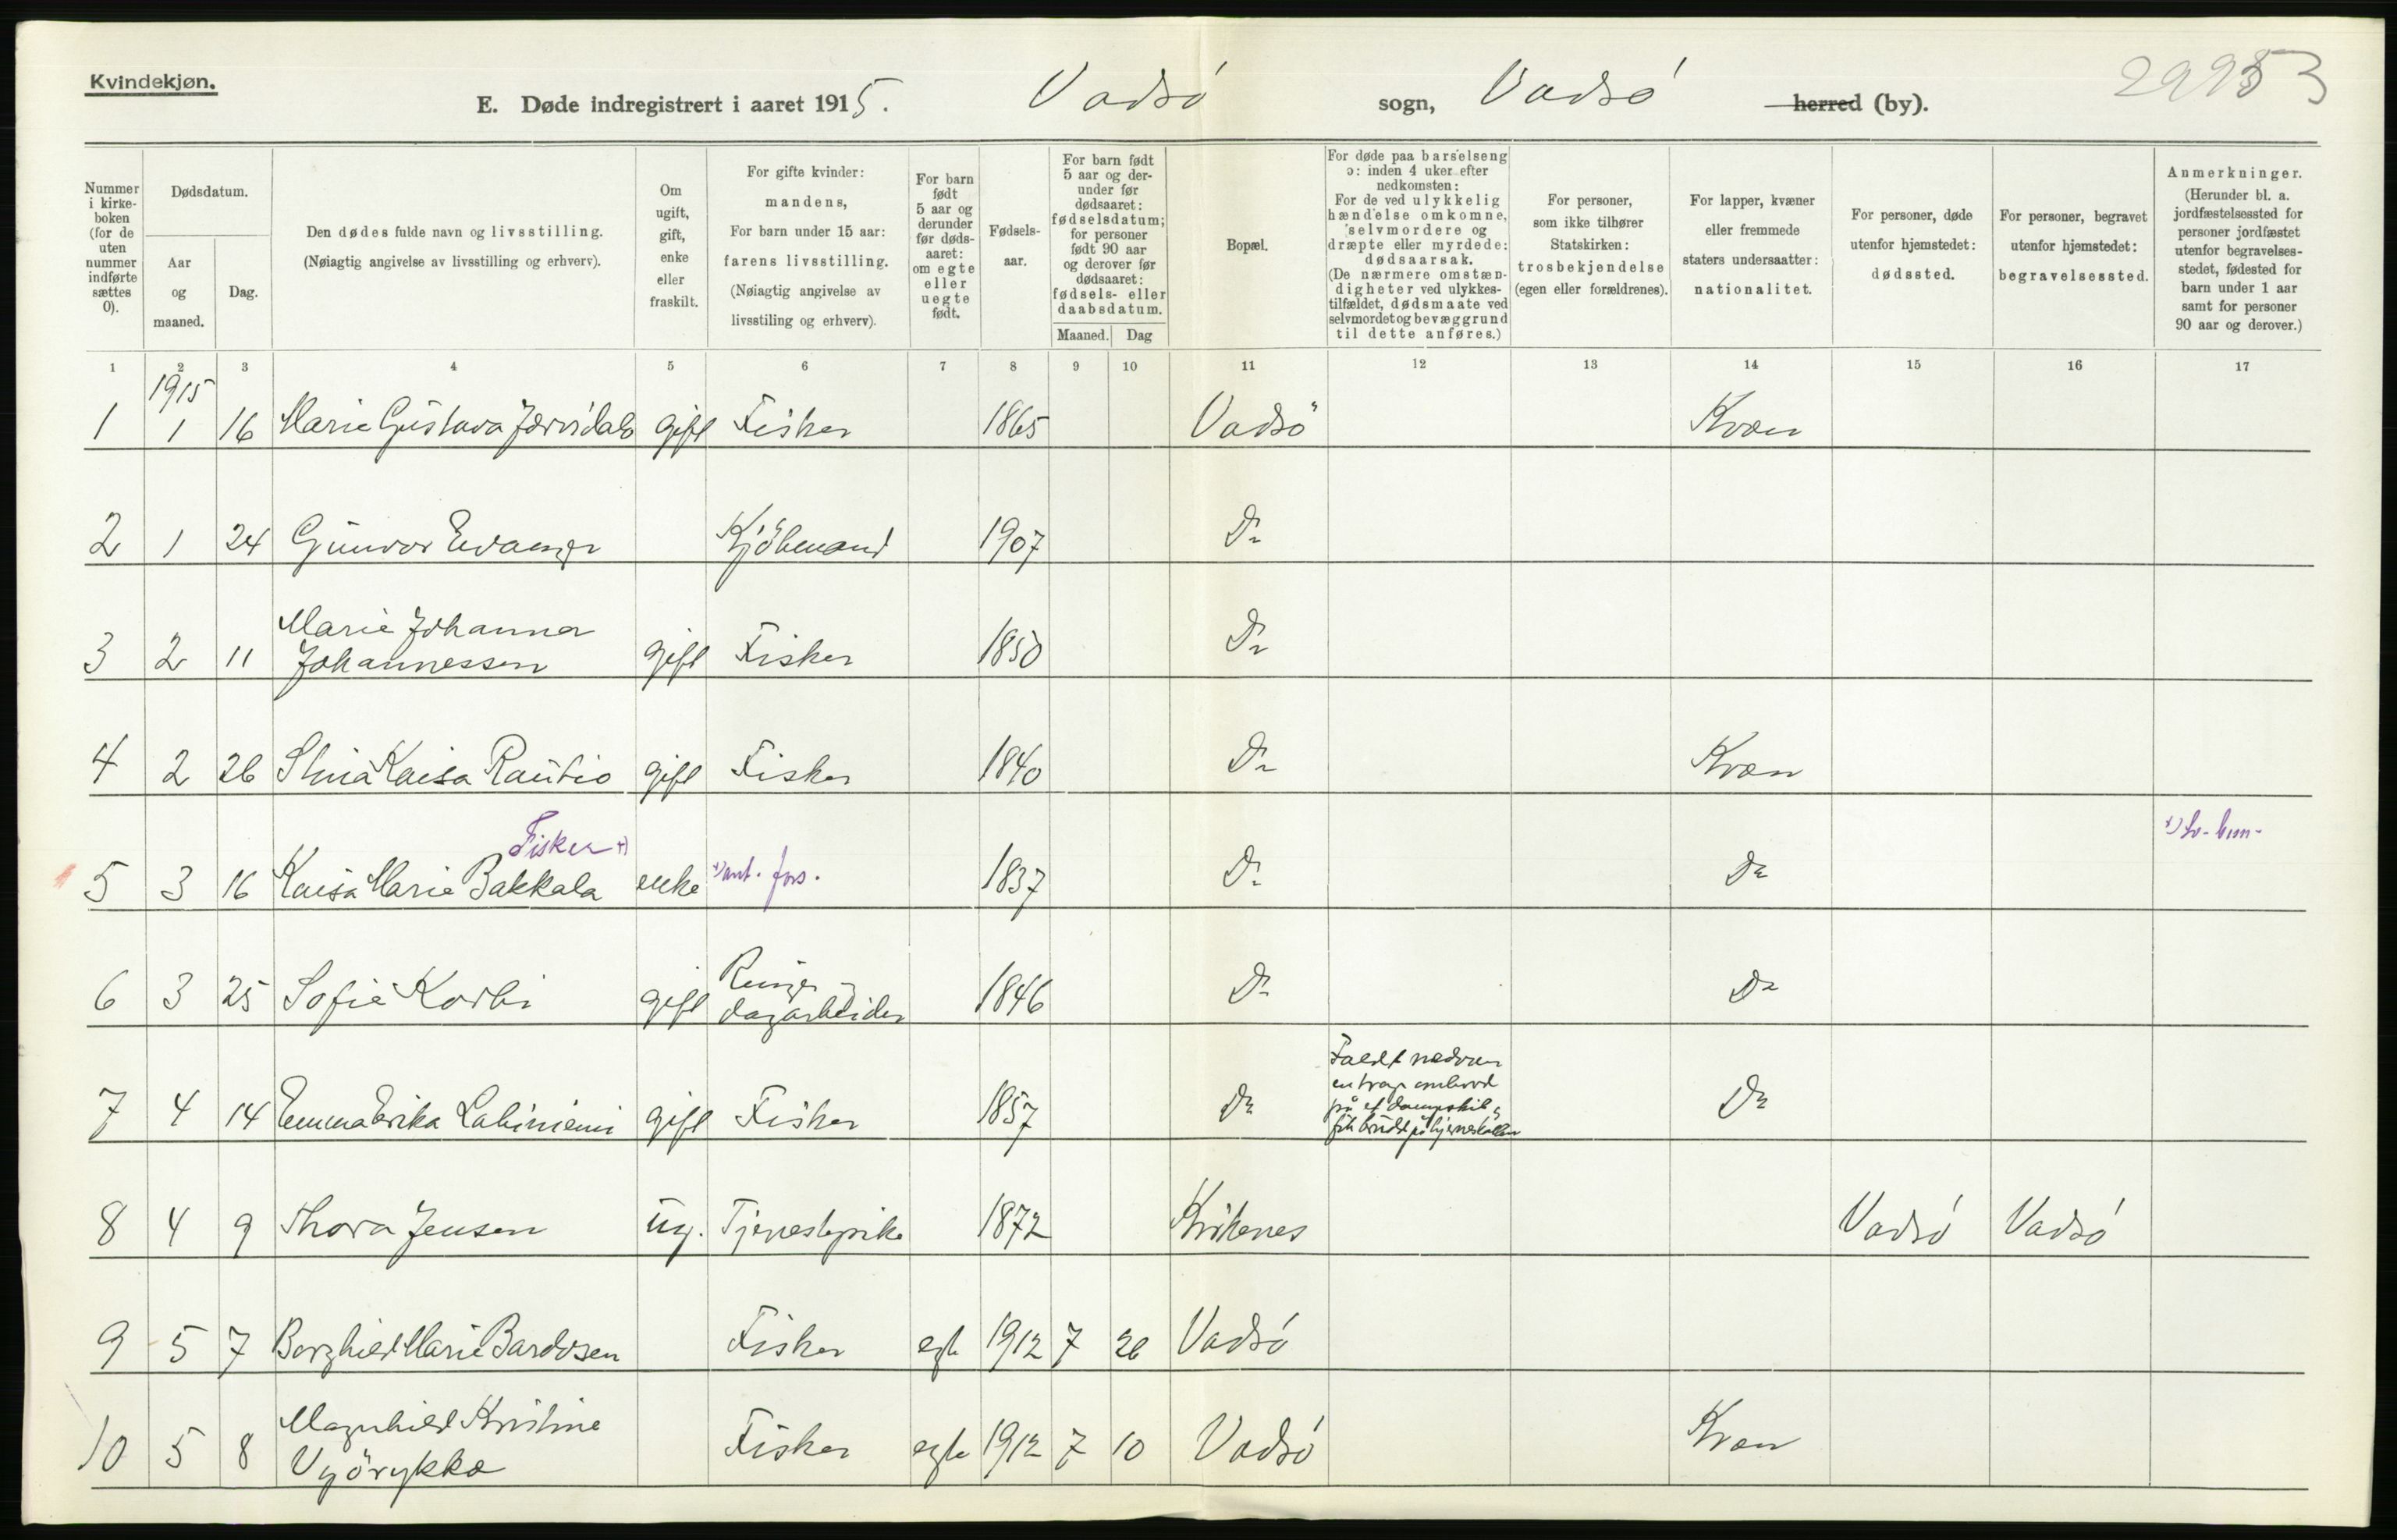 Kvindekjøn.
E. Døde indregistrert i aaret 1915. Vadsø sogn, Vadsø herred (by).
Nummer i kirkeboken (for de uten nummer indførte sættes 0).
Dødsdatum.
Aar og maaned.
Dag.
Den dødes fulde navn og livsstilling.
(Nøiagtig angivelse av livsstilling og erhverv).
Om ugift, gift, enke eller fraskilt.
For gifte kvinder: mandens,
For barn under 15 aar: farens livsstilling.
(Nøiagtig angivelse av livsstiling og erhverv).
For barn født 5 aar og derunder før dødsaaret: om egte eller uegte født.
Fødselsaar.
For barn født 5 aar og derunder før dødsaaret: fødselsdatum; for personer født 90 aar og derover før dødsaaret: fødsels- eller daabsdatum.
Maaned. Dag
Bopæl.
For døde paa barselseng ɔ: inden 4 uker efter nedkomsten:
For de ved ulykkelig hændelse omkomne, selvmordere og dræpte eller myrdede: dødsaarsak.
(De nærmere omstændigheter ved ulykkestilfældet, dødsmaate ved selvmordet og bevæggrund til dette anføres.)
For personer, som ikke tilhører Statskirken: trosbekjendelse (egen eller forældrenes).
For lapper, kvæner eller fremmede staters undersaatter: nationalitet.
For personer, døde utenfor hjemstedet: dødssted.
For personer, begravet utenfor hjemstedet: begravelsessted.
Anmerkninger.
(Herunder bl. a. jordfæstelsessted for personer jordfæstet utenfor begravelsesstedet, fødested for barn under 1 aar samt for personer 90 aar og derover.)
1 2 3 4 5 6 7 8 9 10 11 12 13 14 15 16 17
1915
1 1 16 Marie Gustava gift Fisker 1865 Vadsö Kvæn
2 1 24 Gunvor Evanger Kjöbmand 1907 Do
3 2 11 Marie Johanna Johannessen gift Fisker 1850 Do
4 2 26 Stina Kaisa Rautio gift Fisker 1840 Do Kvæn
5 3 16 Kaisa Marie Bakkala Fisker x) enke x) unt. fors. 1837 Do Do
6 3 25 Sofie Korbi gift Ringer dagarbeider 1846 Do Do
7 4 14 Emma Erika Lahiniemi gift Fisker 1857 Do Faldt nedover en trap ombord på et dampskib, fik brudt på hjerneskallen Do
8 4 9 Thora Jensen ug. Tjenestepike 1872 Kirkenes Vadsø Vadsø
9 5 7 Borghild Marie Bardosen Fisker egte 1912 7 26 Vadsø
10 5 8 Magnhild Kristine Vyörykka Fisker egte 1912 7 10 Vadsø Kvæn